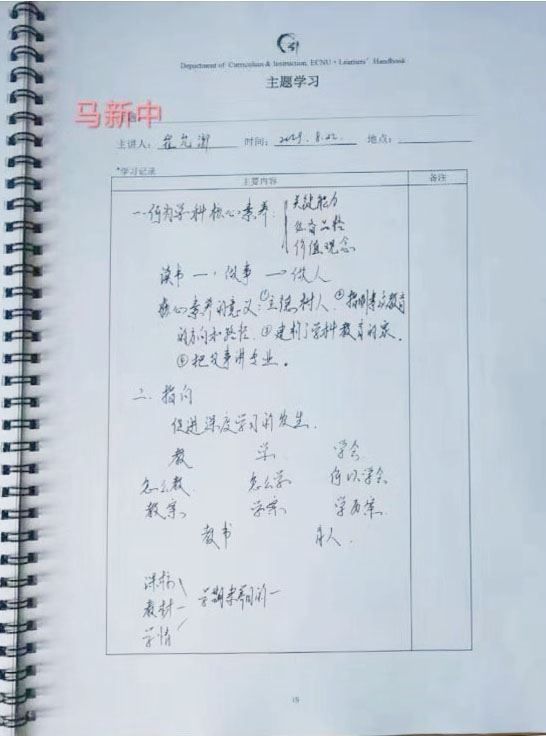 Department of Curriculum & Instruction, ECNU · Learners' Handbook
主题学习
马新中
主讲人: 崔允漷 时间: 8.22. 地点:
*学习记录
主要内容 备注
一. 何为学科核心素养:
关键能力
必备品格
价值观念
读书 → 做事 → 做人
核心素养的意义: ①立德树人 ②指明素质教育
的方向和路径. ③建构了学科教育的家.
④把故事讲专业.
二. 指向
促进深度学习的发生.
教 学 学会
怎么教 怎么学 何以学会
教案 学案 学历案.
教书 育人.
课标
教材
学情
学期
15